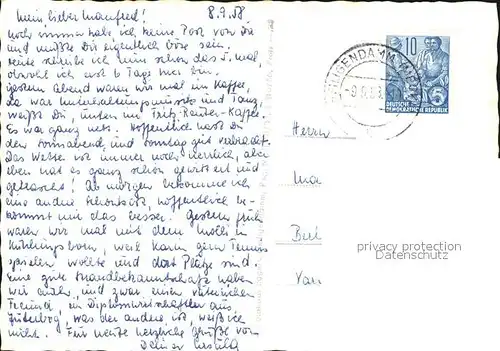 Mein lieber Manfred! 8.9.58
noch immer habe ich keine Post von Dir
und müßte Dir eigentlich böse sein.
Heute schreibe ich nun schon das 5. mal,
obwohl ich erst 6 Tage hier bin.
Gestern Abend waren wir mal im Kaffee,
da war Unterhaltungsmusik und Tanz,
weißt Du, unten im Fritz-Reuter-Kaffee.
Es war ganz nett. Hoffentlich hast Du
den Sonnabend und Sonntag gut verbracht.
Das Wetter ist immer noch herrlich, aber
eben hat es ganz schön gewittert und
Ab morgen bekomme ich
eine andere hoffentlich be-
kommt mir das besser. Gestern früh
waren wir mal mit dem Molli in
Kühlungsborn, weil Karin gern Tennis
spielen wollte und dort Plätze sind.
Eine gute Strandbekanntschaft haben
wir auch, und zwar einen
Freund, ein Diplomwirtschaftler aus
Jüterbog, was der andere ist, weiß ich
nicht. Für heute herzliche Grüße von
Deiner Ursula
HEILIGENDAMM
-9.9.58
10
5
DEUTSCHE
DEMOKRATISCHE REPUBLIK
Herrn
Ma
privacy protection
Datenschutz